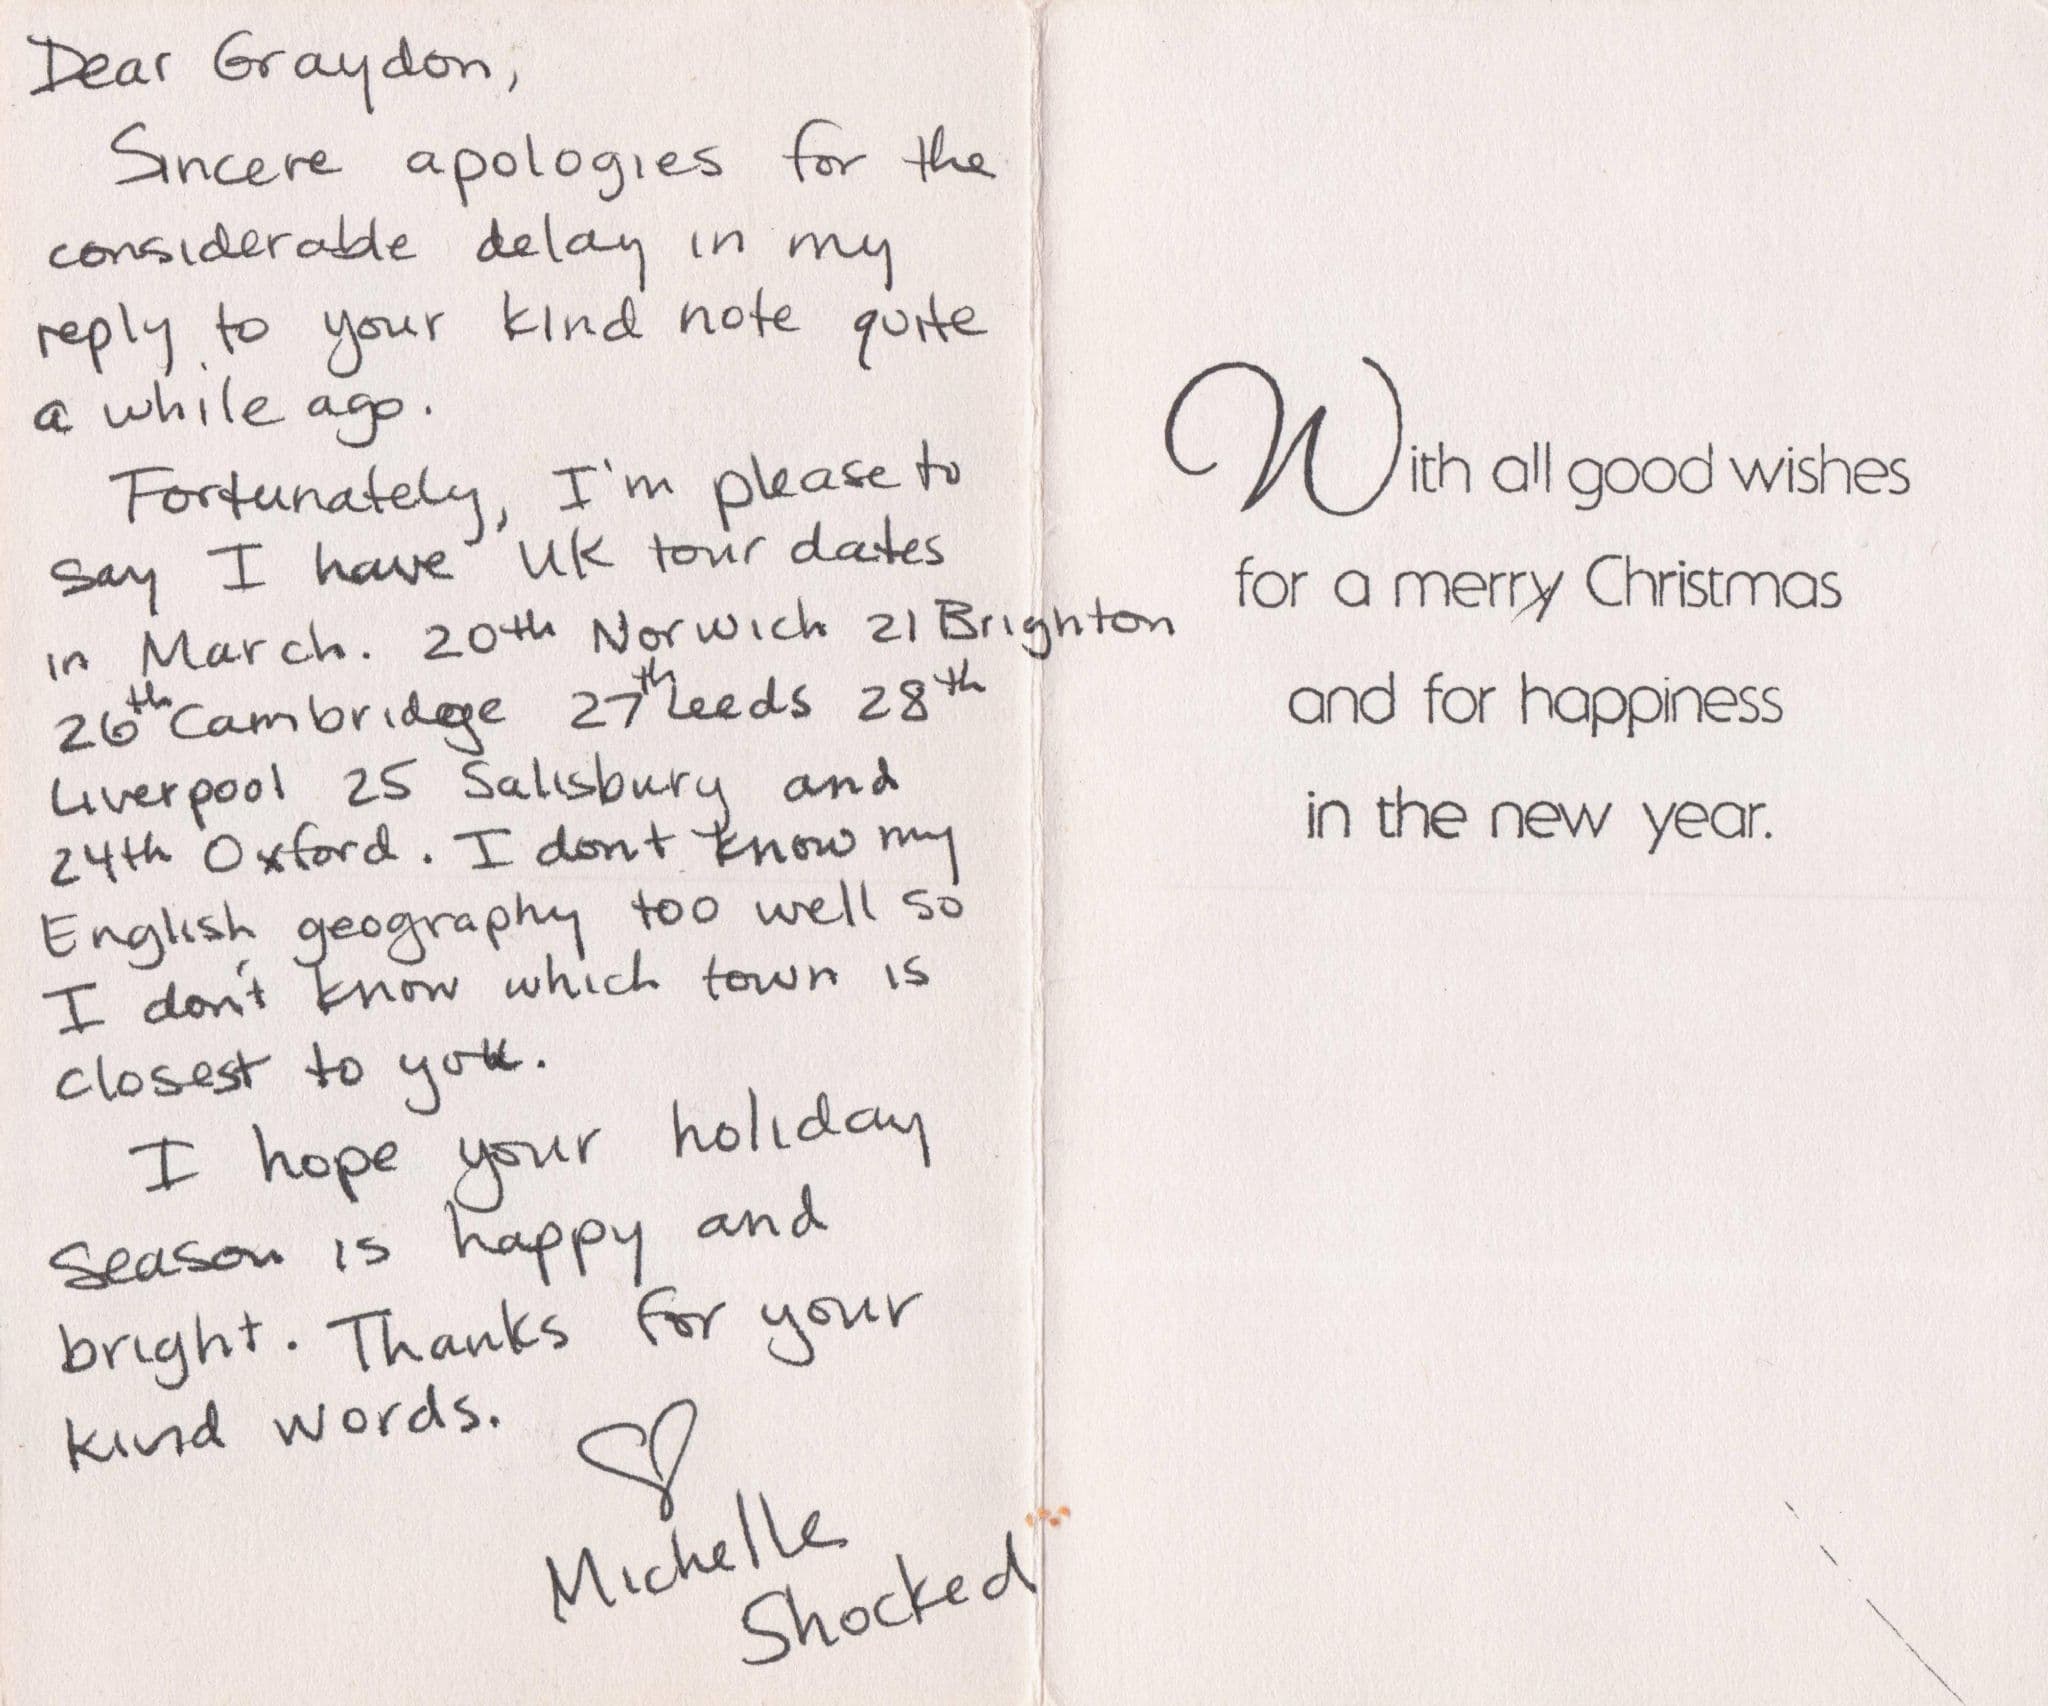 Dear Graydon,
Sincere apologies for the
considerable delay in my
reply to your kind note quite
a while ago.
Fortunately, I'm please to
say I have UK tour dates
in March. 20th Norwich 21 Brighton
26th Cambridge 27th Leeds 28th
Liverpool 25 Salisbury and
24th Oxford. I don't know my
English geography too well so
I don't know which town is
closest to you.
I hope your holiday
season is happy and
bright. Thanks for your
kind words.
Michelle
Shocked
With all good wishes
for a merry Christmas
and for happiness
in the new year.